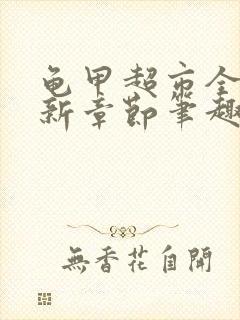 龟甲超市全
新章节笔趣
無香花自開